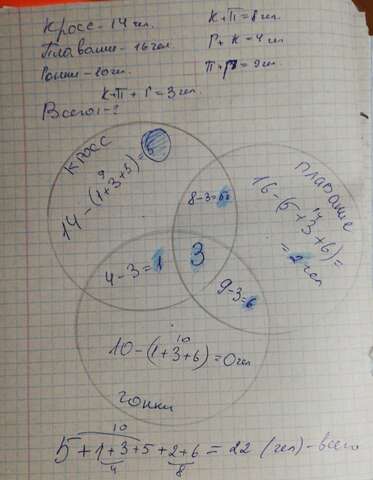 Кросс - 14 чел. К+П = 8 чел
Плавание - 16 чел Г+К = 4 чел
Гонки - 10 чел. П+Г = 9 чел.
К+П + Г = 3 чел.
Всего - ?
КРОСС
Плавание
9
14 - (1+3+5) = 5
8-3=5
14
16-(5+3+6)=
= 2 чел
4-3=1
3
9-3=6
10
10-(1+3+6)=0 чел
Гонки
10
5+1+3+5+2+6 = 22 (чел) - всего
4 8